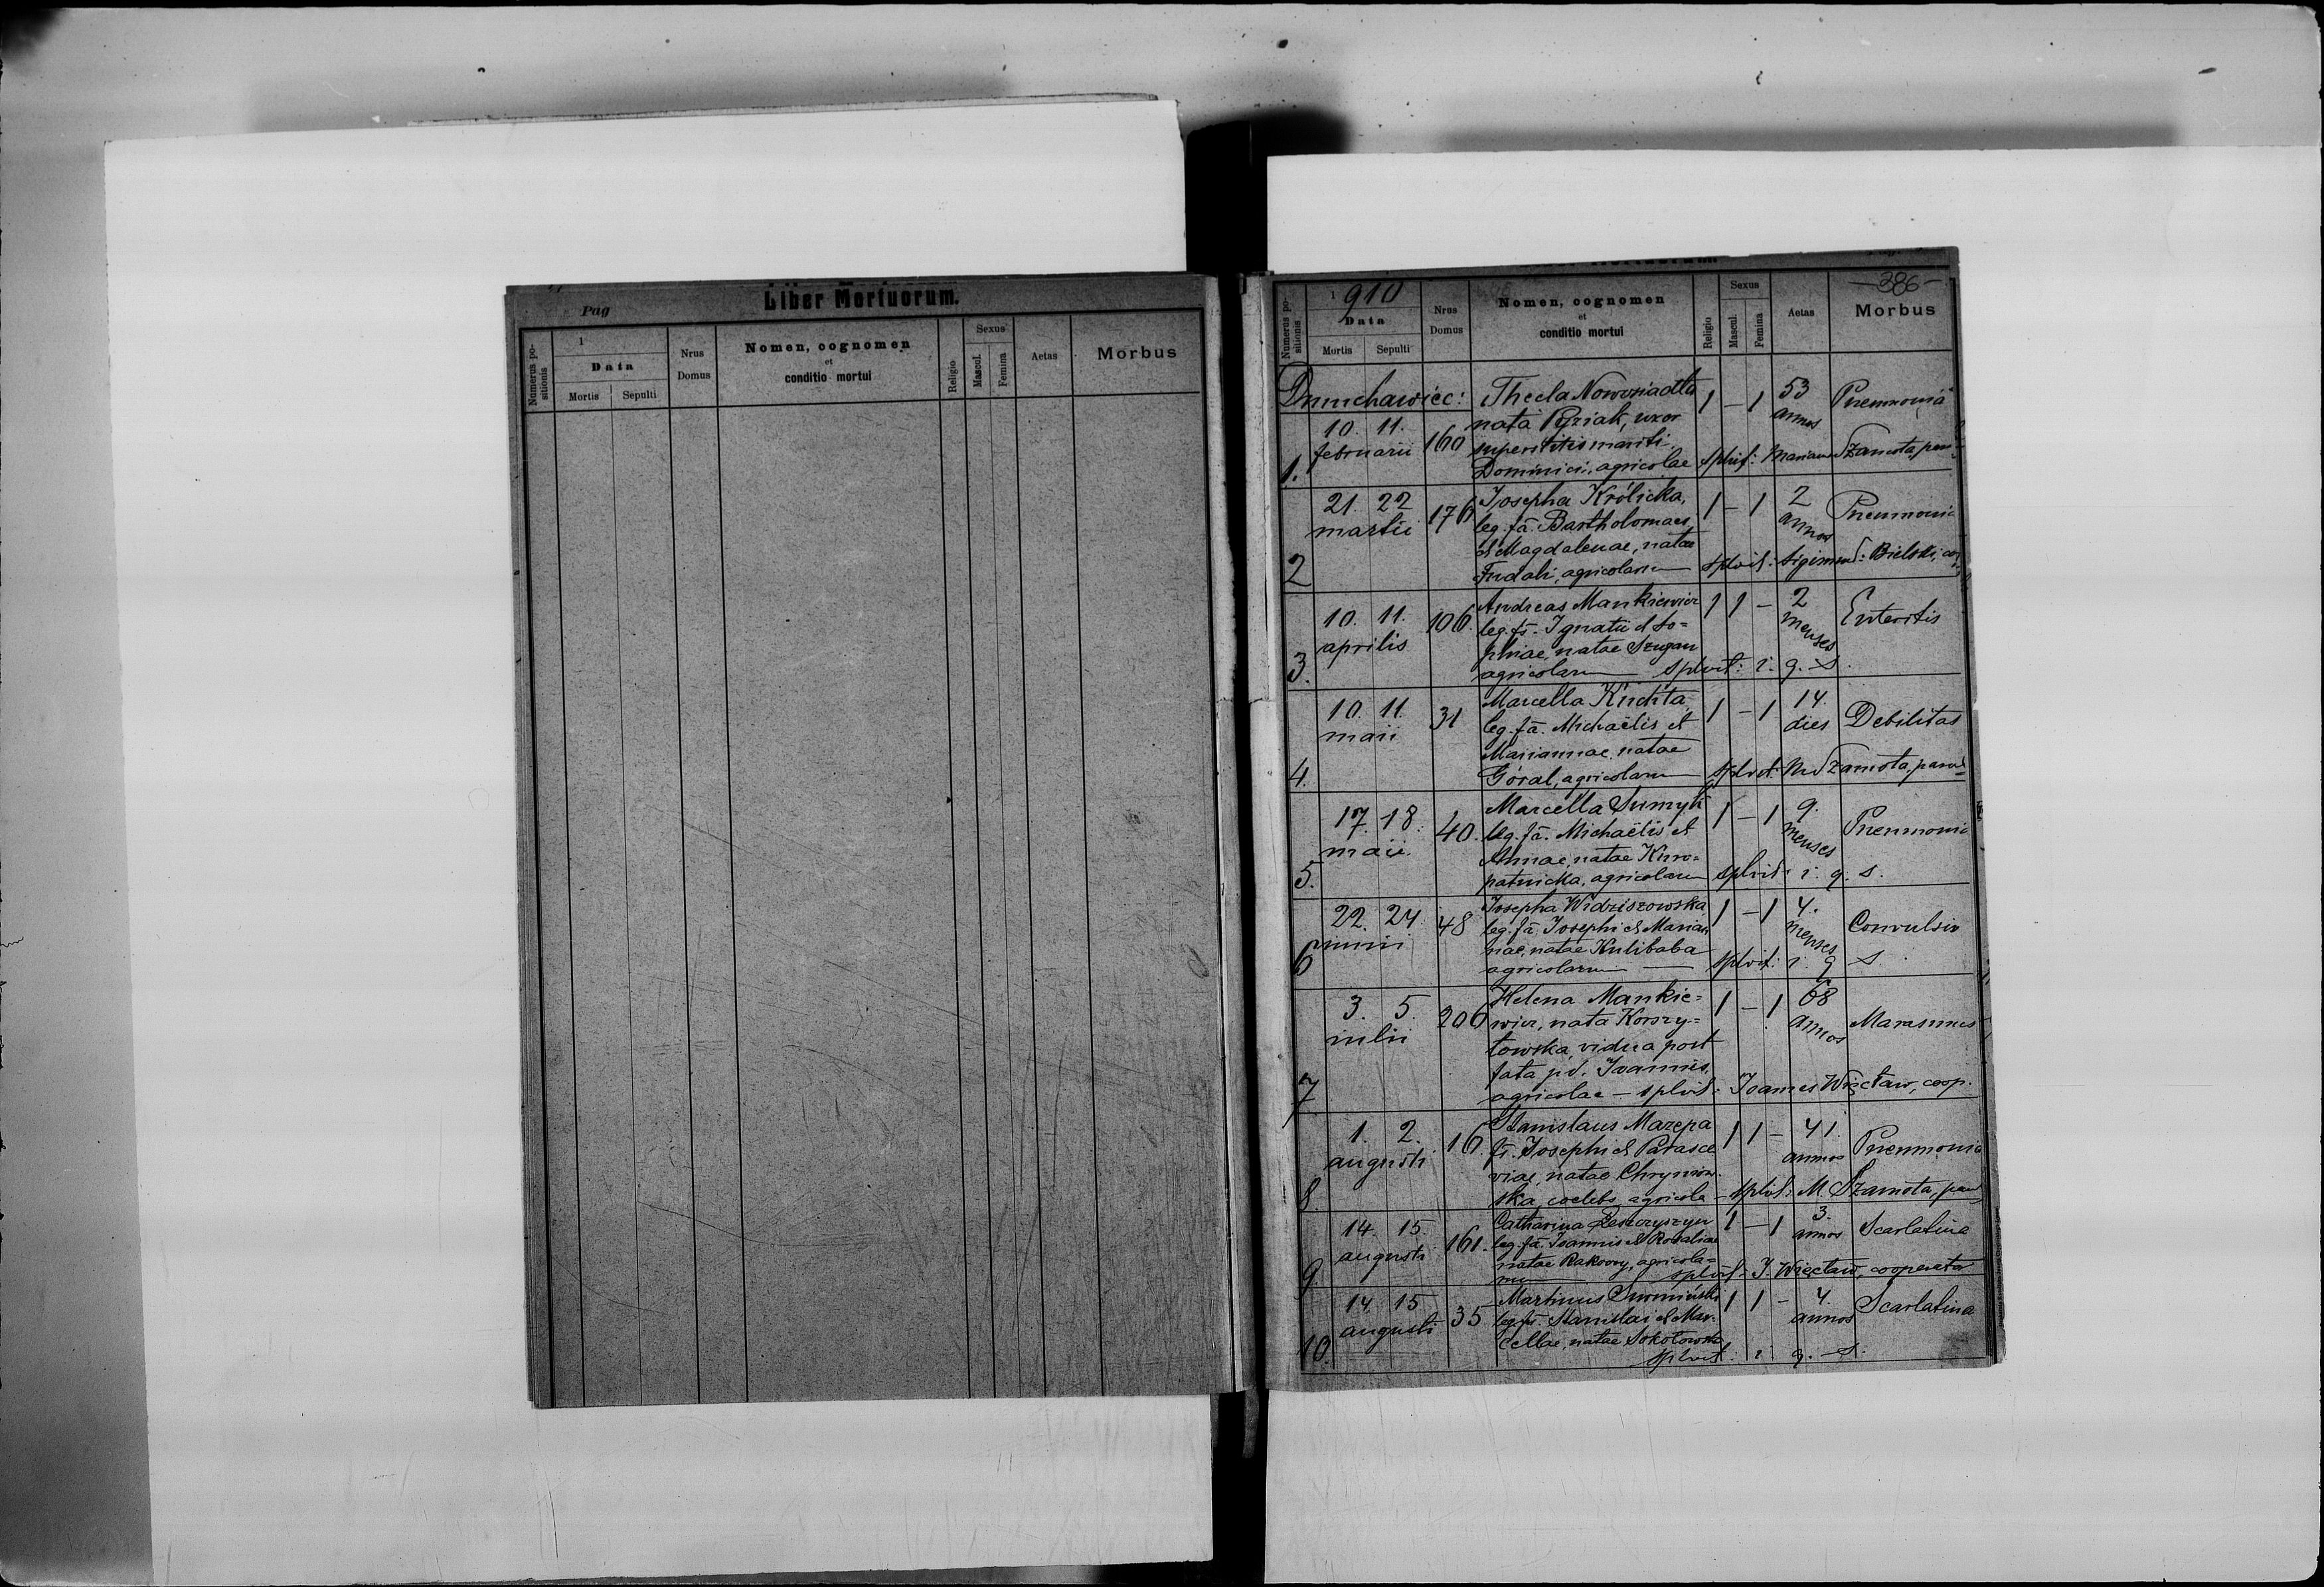 Pag
Liber Mortuorum.
Numerus positionis
1
Data
Mortis Sepulti
Nrus Domus
Nomen, cognomen
et
conditio mortui
Religio
Sexus
Mascul. Femina
Aetas
Morbus
-386-
Numerus positionis
1910
Data
Mortis Sepulti
Nrus Domus
Nomen, cognomen
et
conditio mortui
Religio
Sexus
Mascul. Femina
Aetas
Morbus
Dmuchawiec: Thecla 1 - 1 53 Pneumonia
10. 11. nata uxor annos
februarii 160 superstitis mariti
1. Dominici, agricolae splvit: Marianus Szamota, par
21. 22 176 Josepha Królicka, 1 - 1 2 Pneumonia
martii leg. fa. Bartholomaei annos
et Magdalenae, natae
2 Fudali, agricolarum splvit: Bielski,
10. 11. 106. Andreas Mankiewicz 1 1 - 2 Enteritis
aprilis leg. fs. Ignatii et So=
phiae, natae Szugan menses
3. agricolarum splvit: i. q. s.
10. 11. 31 Marcella Kuchta, 1 - 1 14. Debilitas
maii leg. fa. Michaëlis et dies
Mariannae, natae
4. Góral, agricolarum splvit: M. Szamota, paroch
17. 18. 40. Marcella 1 - 1 9. Pneumonia
maii. leg. fa. Michaëlis et menses
Annae, natae Kuro=
5. patnicka, agricolarum splvit: i. q. s.
22. 24. 48 Josepha Widziszowska, 1 - 1 4. Convulsio
iunii leg. fa. Josephi et Marian menses
nae, natae Kulibaba
6 agricolarum splvit: i. q. s.
3. 5. 206 Helena Mankie= 1 - 1 68 Marasmus
iulii wicz, nata Korszy= annos
łowska, vidua post
fata pd. Joannis,
7 agricolae - splvit: Joannes Więcław, coop.
1. 2. 16. Stanislaus Mazepa 1 1 - 41. Pneumonia
augusti fs. Josephi et Parasce annos
viae, natae
8. ska, coelebs, agricola - splvit: M. Szamota, par
14. 15. 161. Catharina 1 - 1 3. Scarlatina
augusti leg. fa. Joannis et Rosaliae annos
natae Rakoczy, agricola=
9. rum splvit: J. Więcław, cooperator
14. 15 35 Martinus 1 1 - 4. Scarlatina
augusti leg. fs. Stanislai et Mar= annos
cellae, natae Sokołowska
10. splvit: i. q. s.